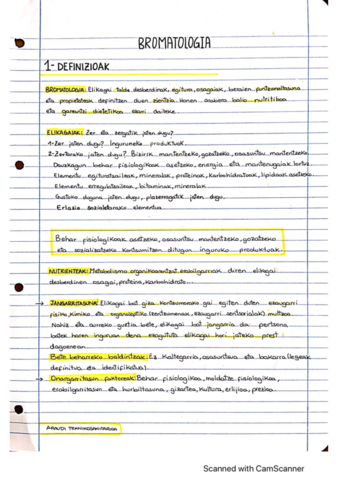 BROMATOLOGIA
1- DEFINIZIOAK
BROMATOLOGIA: Elikagai talde desberdinak, egitura, osagaiak, beraien funtzionaltasuna
eta propietateak definitzen duen zientzia. Honen arabera balio nutritiboa
eta garrantzi dietetikoa esan daiteke.
ELIKAGAIAK: Zer eta zergatik jaten dugu?
1-Zer jaten dugu? Inguruneko produktuak.
2-Zertarako jaten dugu? Bizirik mantentzeko, gozatzeko, osasuntsu mantentzeko
Daukagun behar fisiologikoak asetzeko, energia eta mantenugaiak lortuz.
Elementu egituratzaileak, mineralak, proteinak, karbohidratoak, lipidoak asetzeko
Elementu erregulatzaileak, bitaminak, mineralak
Gustoko duguna jaten dugu, plazerragatik jaten dugu.
Erlazio sozialetarako elementua.
Behar fisiologikoak asetzeko, osasuntsu mantentzeko, gozatzeko
eta sozializatzeko kontsumitzen ditugun inguruko produktuak.
NUTRIENTEAK: Metabolismo organikoarentzat erabilgarriak diren elikagai
desberdinen osagai, proteina, karbohidrato...
→ JANGARRITASUNA: Elikagai bat giza kontsumorako gai egiten duten ezaugarri
fisiko, kimiko eta organoleptiko (zentzumenak, ezaugarri sentsorialak) multzoa
Nahiz eta aurreko guztia bete, elikagai bat jangarria da pertsona,
batek haren inguruan dena ezagututa elikagai hori jateko prest
dagoenean.
Bete beharreko baldintzak: Ez kaltegarria, osasuntsua eta bakarra (legeak
definitua eta identifikatua).
→ Onargarritasun faktoreak: Behar fisiologikoa, moldatze fisiologikoa,
eskuragarritasun eta hurbiltasuna, gizartea, kultura, erlijioa, prezioa.
ARAUDI TEKNIKOSANITARIOA
Scanned with CamScanner